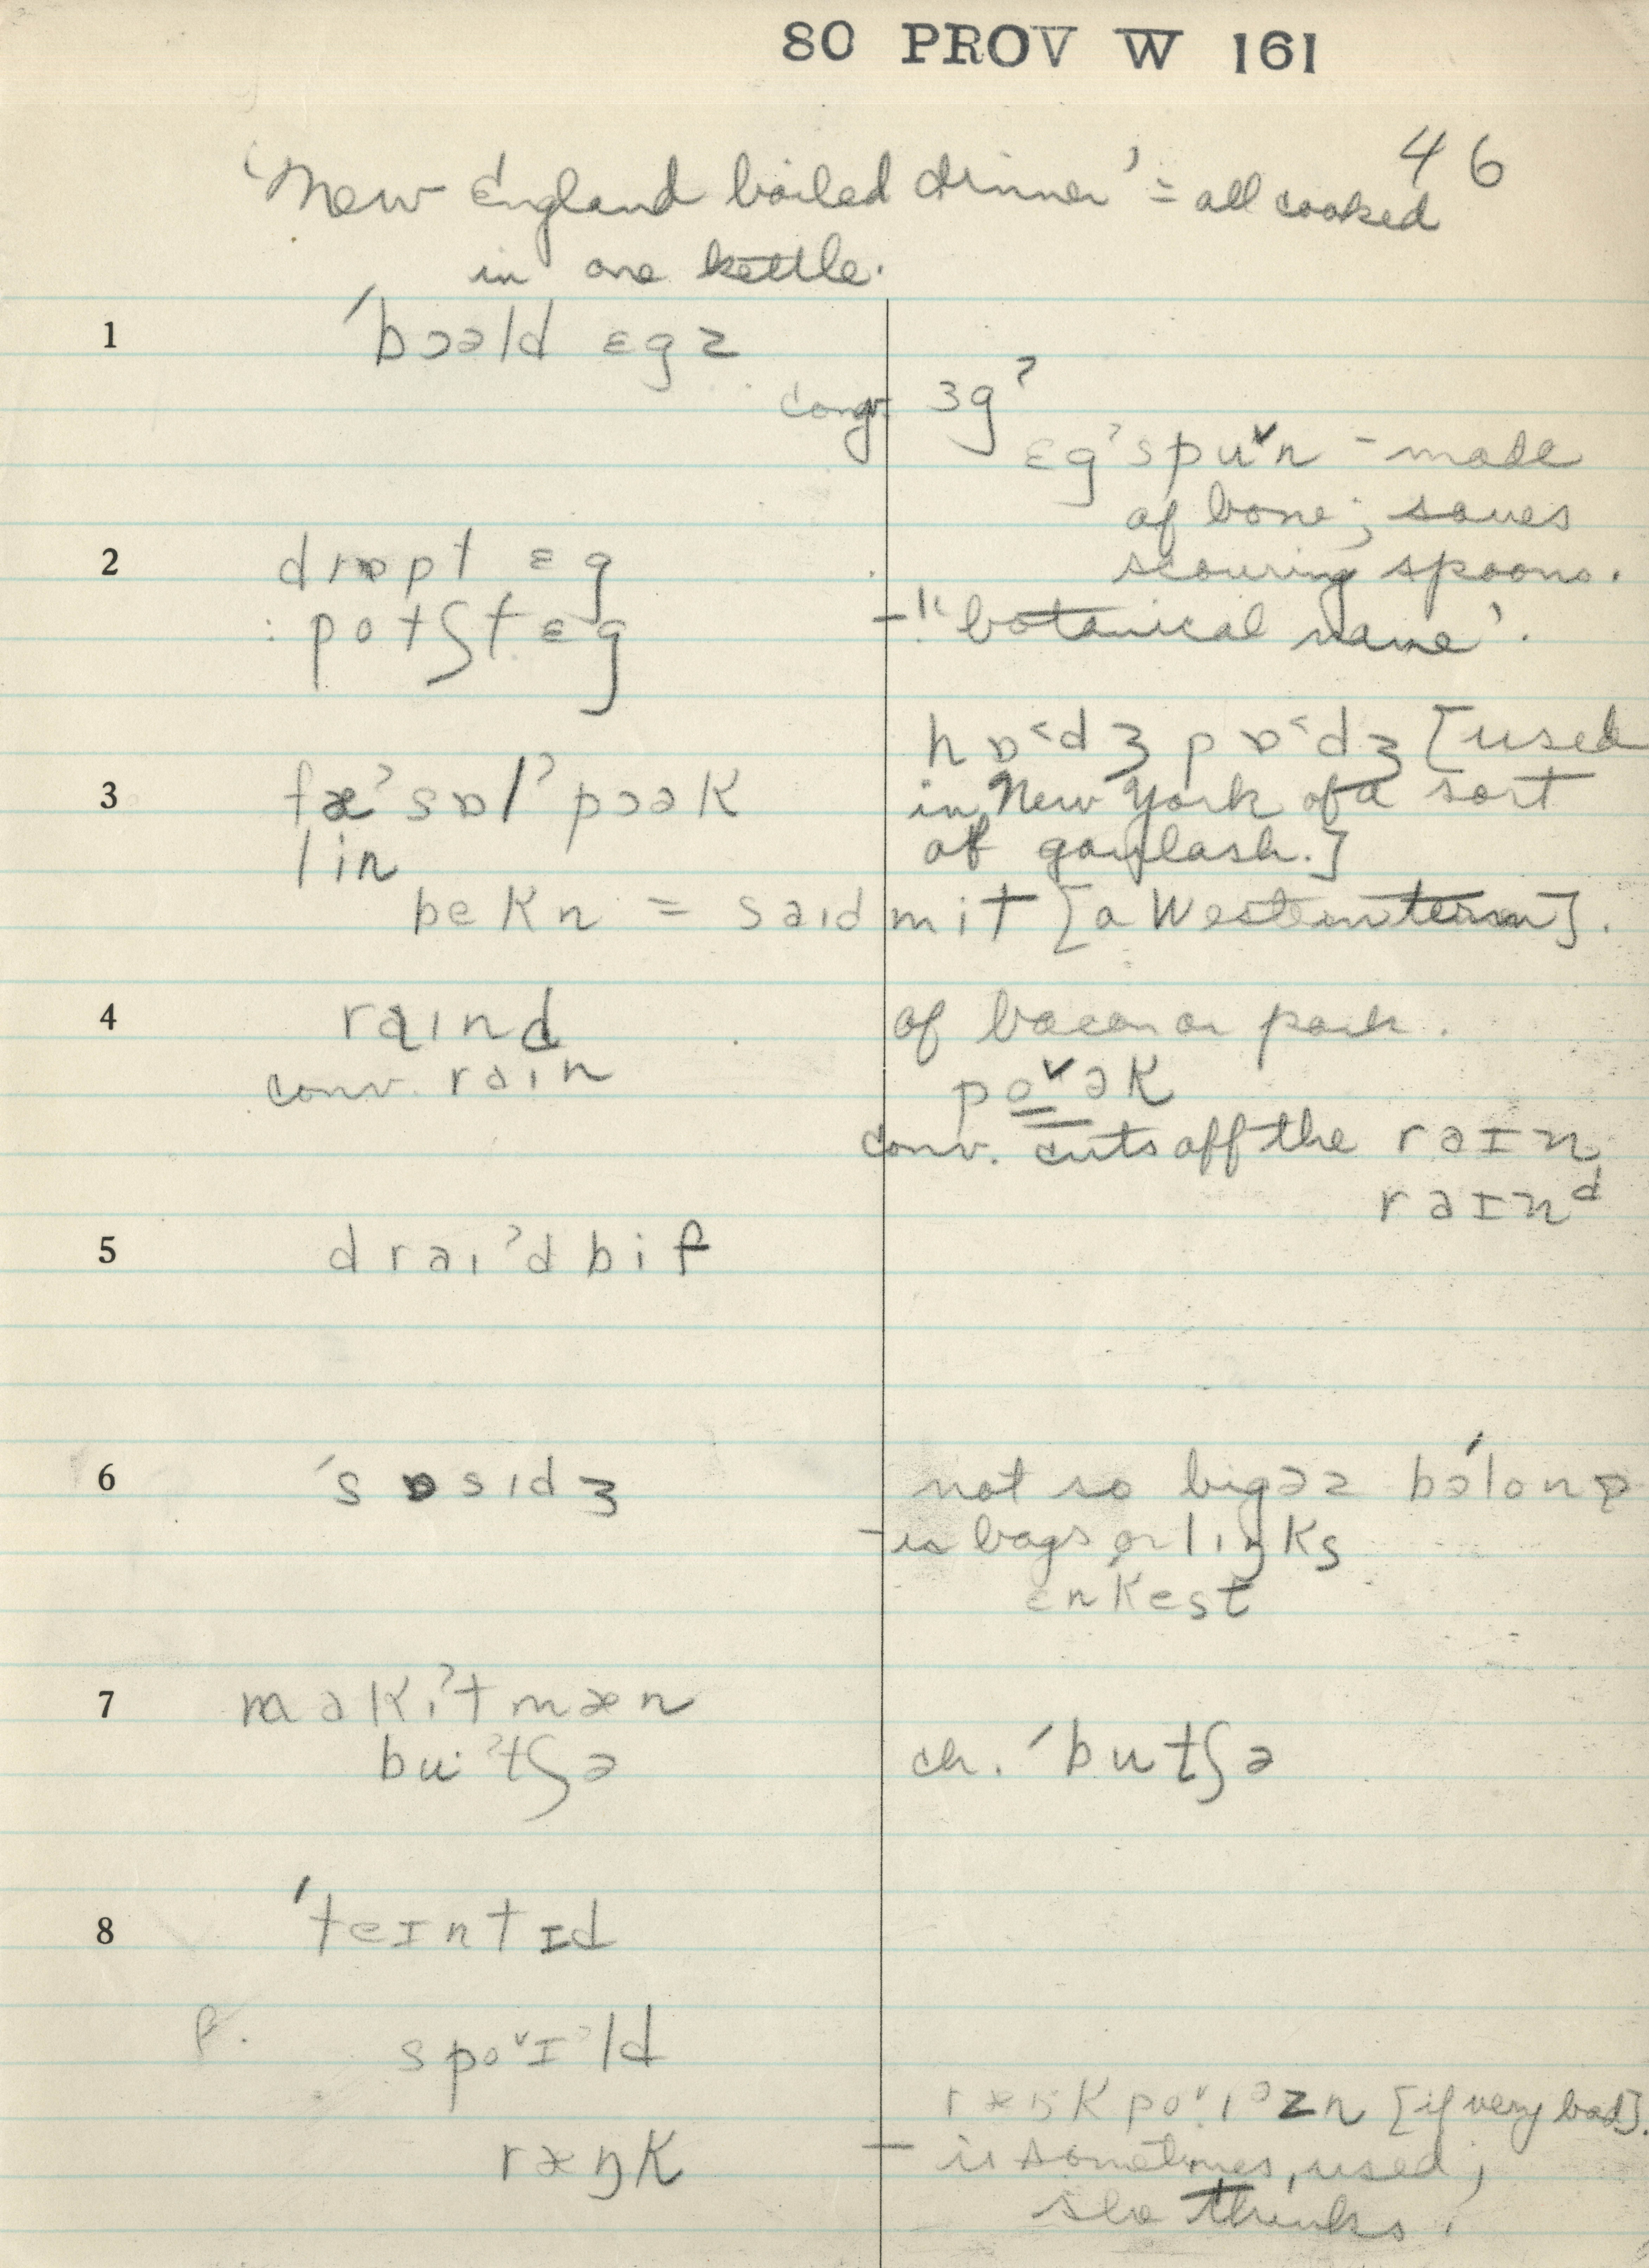 SO PROV W 161
46
'New England boiled dinner' = all cooked
in one kettle.
1 ˈbɔəld ɛgz
conv. ɜgˀ
ɛgˀspuˇn – made
of bone; saves
scouring spoons.
2 drɒpt ɛg
: potʃt ɛg – "botanical name'.
hɒ˂dʒ pɒ˂dʒ [used
in New York of a sort
of goulash.]
3 fæˀ sɒlˀ pɔək
lin
bekn = saɪd mit [a Western term].
4 raɪnd of bacon or pork.
conv. raɪn poˇək
conv. cuts off the raɪn,
raɪnᵈ
5 draɪˀd bif
6 ˈsɒsɪdʒ not so big əz bəˈlonə
– in bags or lɪŋks
enkest
7 makɪˀt mæn
buˀtʃə ch. ˈbutʃə
8 ˈteɪntɪd
f. spoˇɪᵊld
ræŋk poˇɪᵊzn [if very bad].
ræŋk – is sometimes used,
she thinks.